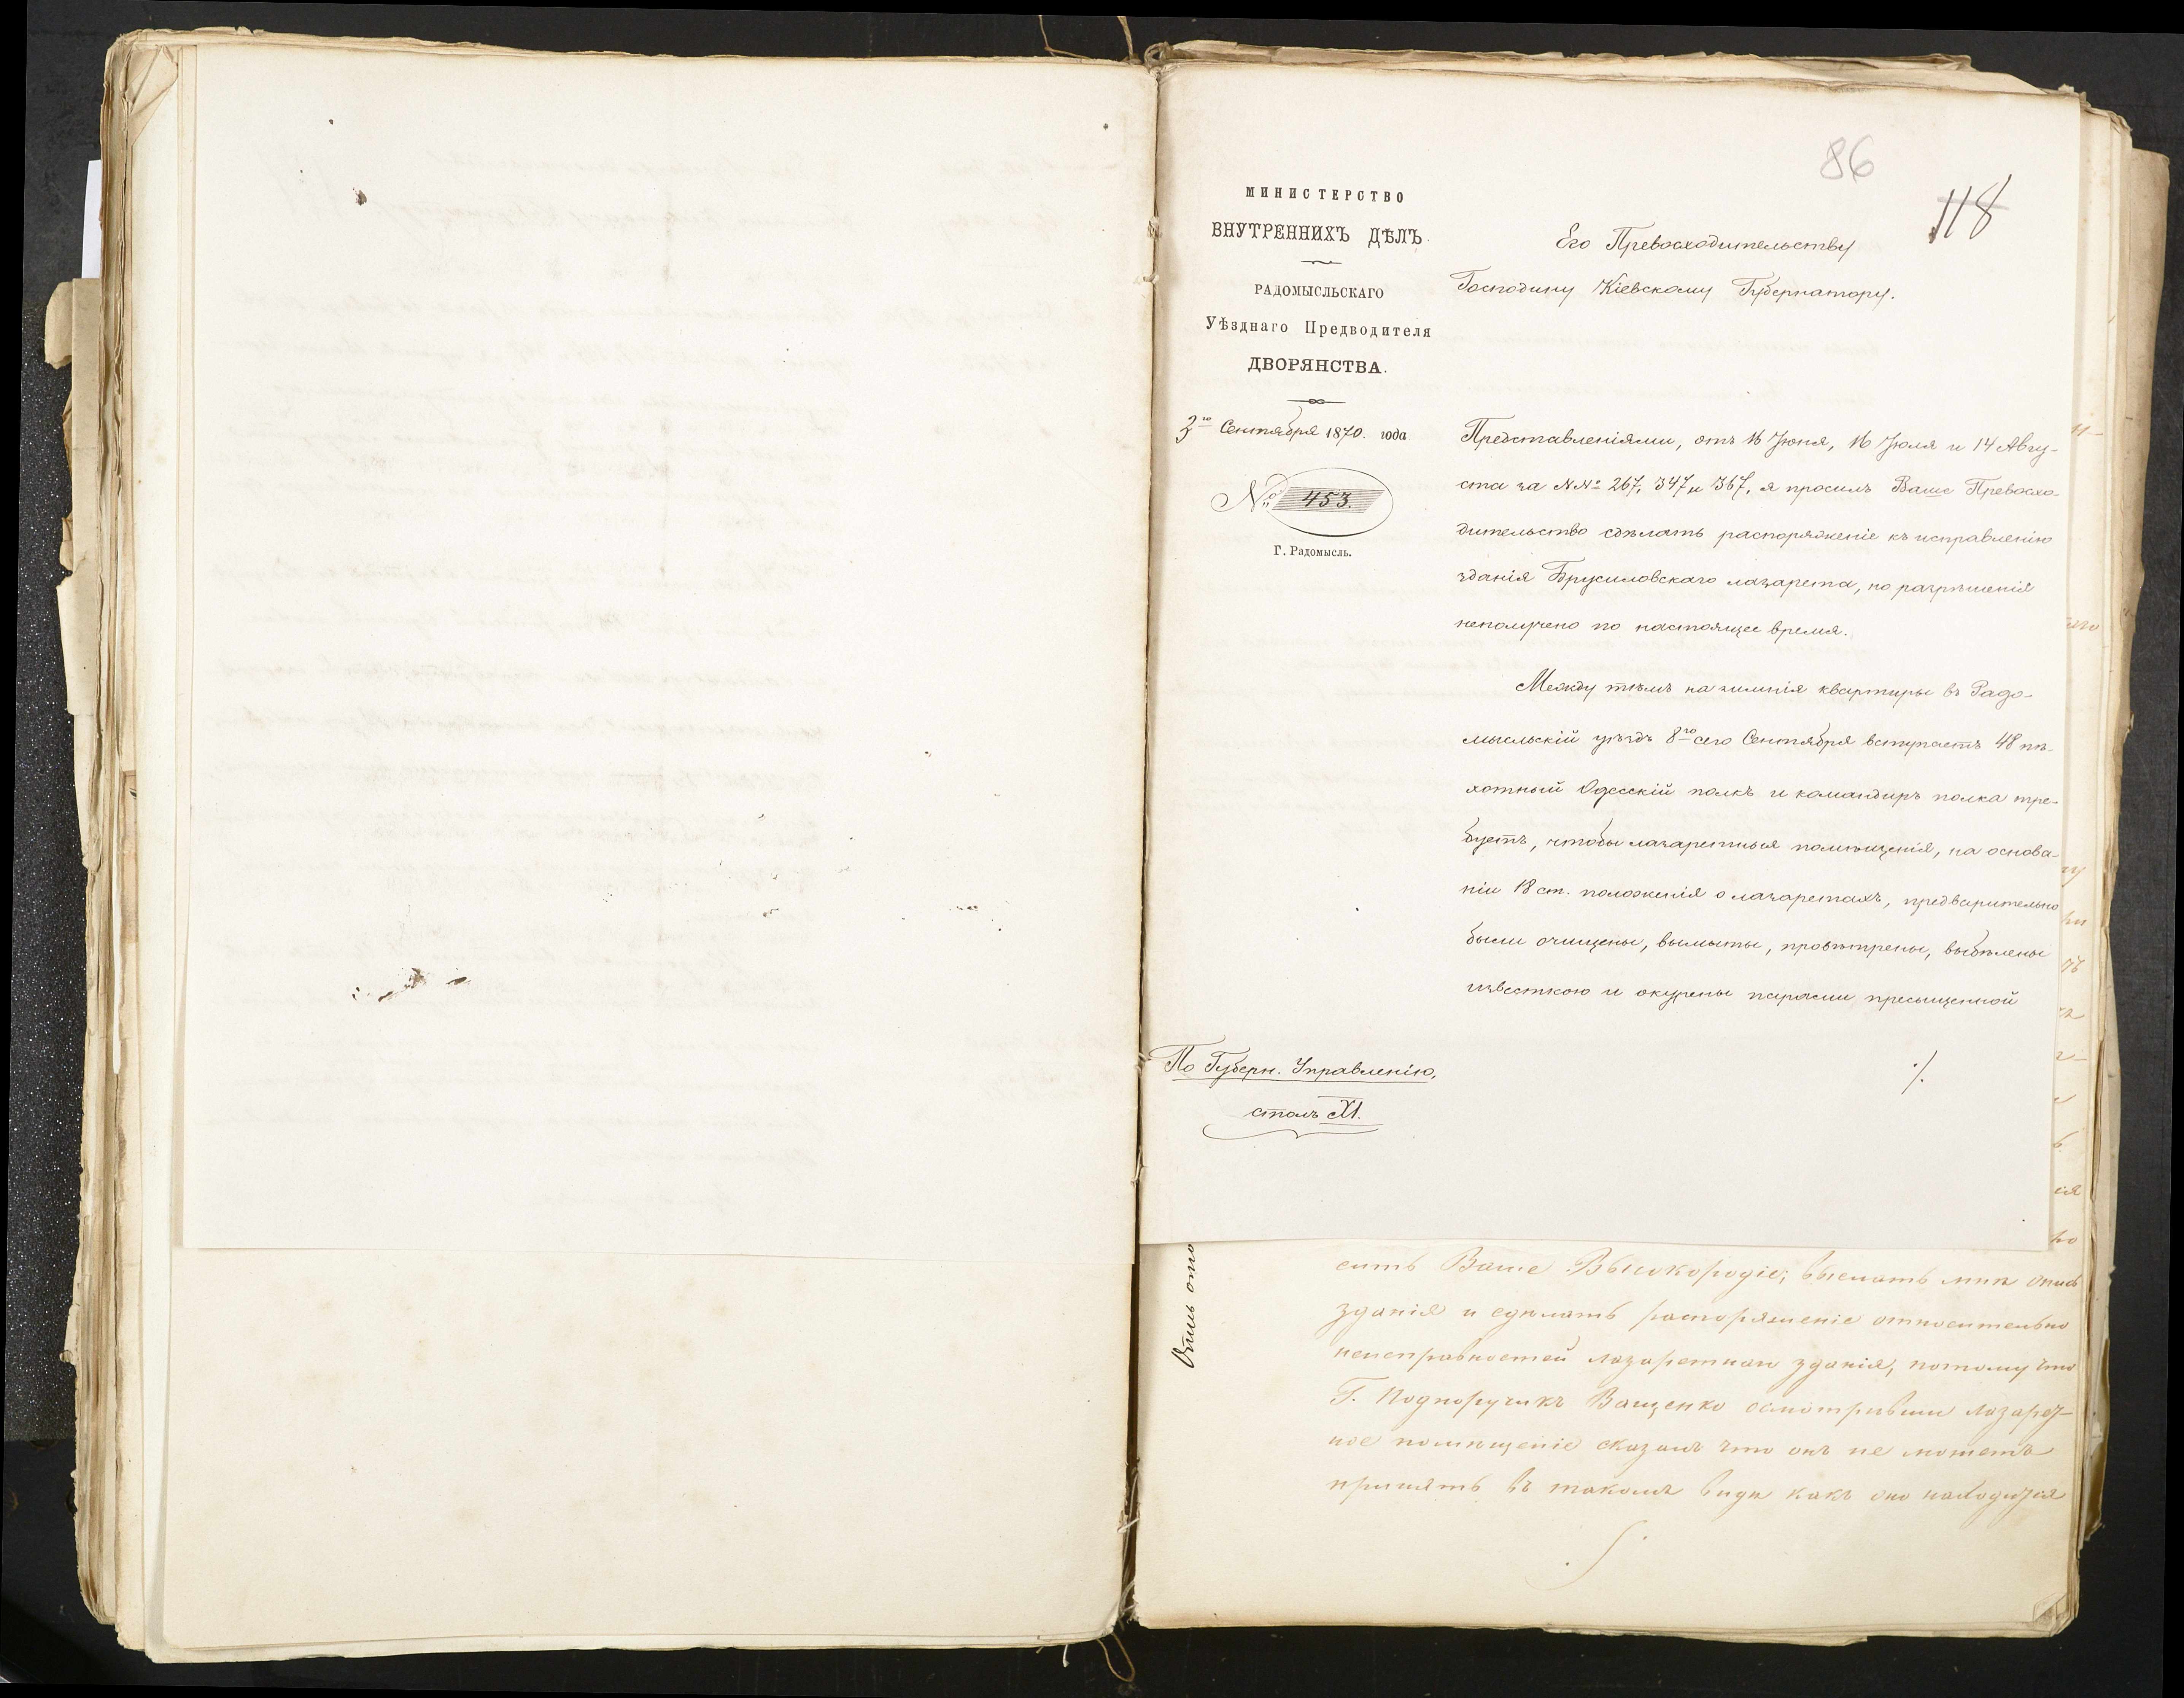 86
118
МИНИСТЕРСТВО
ВНУТРЕННИХЪ ДѢЛЪ.
РАДОМЫСЛЬСКАГО
Уѣзднаго Предводителя
ДВОРЯНСТВА.
3го Сентября 1870. года
№ 453.
Г. Радомысль.
Его Превосходительству
Господину Кіевскому Губернатору.
Представленіями, отъ 16 Іюня, 16 Іюля и 14 Авгу-
ста за №№ 267, 347 и 367, я просилъ Ваше Превосхо-
дительство сдѣлать распоряженіе къ исправленію
зданія Брусиловскаго лазарета, но разрѣшенія
неполучено по настоящее время.
Между тѣмъ на зимнія квартиры въ Радо-
мысльскій уѣздъ 8го сего Сентября вступаетъ 48 пѣ-
хотный Одесскій полкъ и командиръ полка тре-
буетъ, чтобы лазаретныя помѣщенія, на основа-
ніи 18 ст. положенія о лазаретахъ, предварительно
были очищены, вымыты, провѣтрены, выбѣлены
известкою и окурены парами пресыщенной
./.
По Губерн. Управленію,
столъ XI.
сить Ваше Высокородіе; выслать мнѣ опись
зданія и сдѣлать распоряженіе относительно
неисправностей лазаретнаго зданія, потому что
Г. Подпоручикъ Ващенко осмотрѣвши лазарет-
ное помѣщеніе сказалъ что онъ не можетъ
принять въ такомъ видѣ какъ оно находится